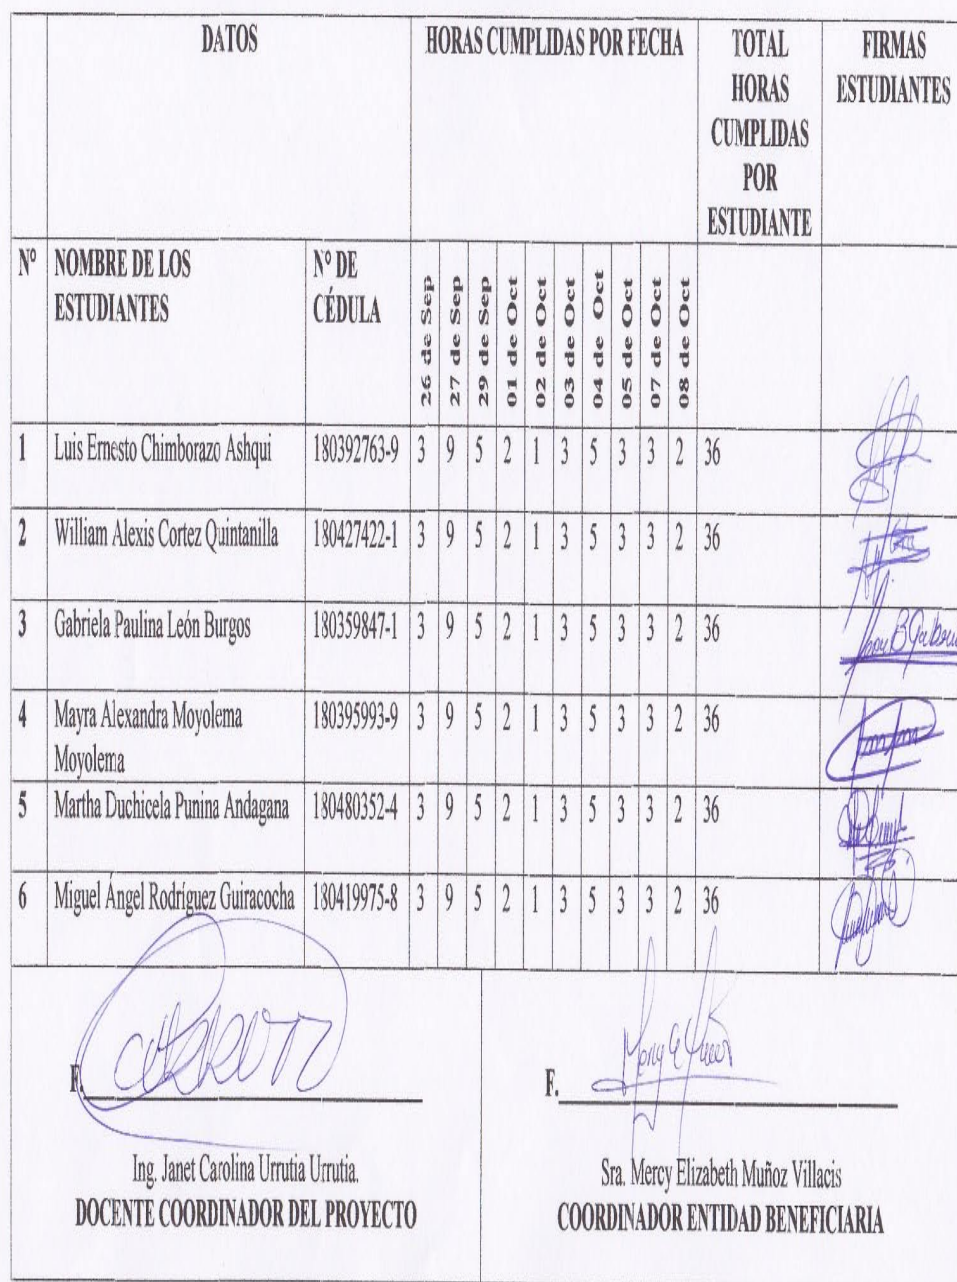 DATOS
HORAS CUMPLIDAS POR FECHA
TOTAL
HORAS
CUMPLIDAS
POR
ESTUDIANTE
FIRMAS
ESTUDIANTES
Nº NOMBRE DE LOS
ESTUDIANTES
Nº DE
CÉDULA
26 de Sep
27 de Sep
29 de Sep
01 de Oct
02 de Oct
03 de Oct
04 de Oct
05 de Oct
07 de Oct
08 de Oct
1 Luis Ernesto Chimborazo Ashqui 180392763-9 3 9 5 2 1 3 5 3 3 2 36
2 William Alexis Cortez Quintanilla 180427422-1 3 9 5 2 1 3 5 3 3 2 36
3 Gabriela Paulina León Burgos 180359847-1 3 9 5 2 1 3 5 3 3 2 36
4 Mayra Alexandra Moyolema 180395993-9 3 9 5 2 1 3 5 3 3 2 36
Moyolema
5 Martha Duchicela Punina Andagana 180480352-4 3 9 5 2 1 3 5 3 3 2 36
6 Miguel Ángel Rodríguez Guiracocha 180419975-8 3 9 5 2 1 3 5 3 3 2 36
F.
Ing. Janet Carolina Urrutia Urrutia.
DOCENTE COORDINADOR DEL PROYECTO
F.
Sra. Mercy Elizabeth Muñoz Villacis
COORDINADOR ENTIDAD BENEFICIARIA